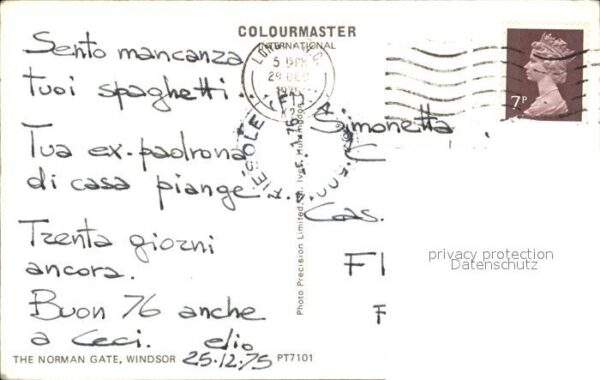 COLOURMASTER
INTERNATIONAL
Sento mancanza
tuoi spaghetti..
Tua ex-padrona
di casa piange..
Trenta giorni
ancora.
Buon 76 anche
a Ceci. elio
25.12.75
THE NORMAN GATE, WINDSOR PT7101
Photo Precision Limited, St. Ives, Huntingdon
5 15PM
29 DEC
1975
FIESOLE (FI)
7P
Simonetta
C
Cas.
F
privacy protection
Datenschutz